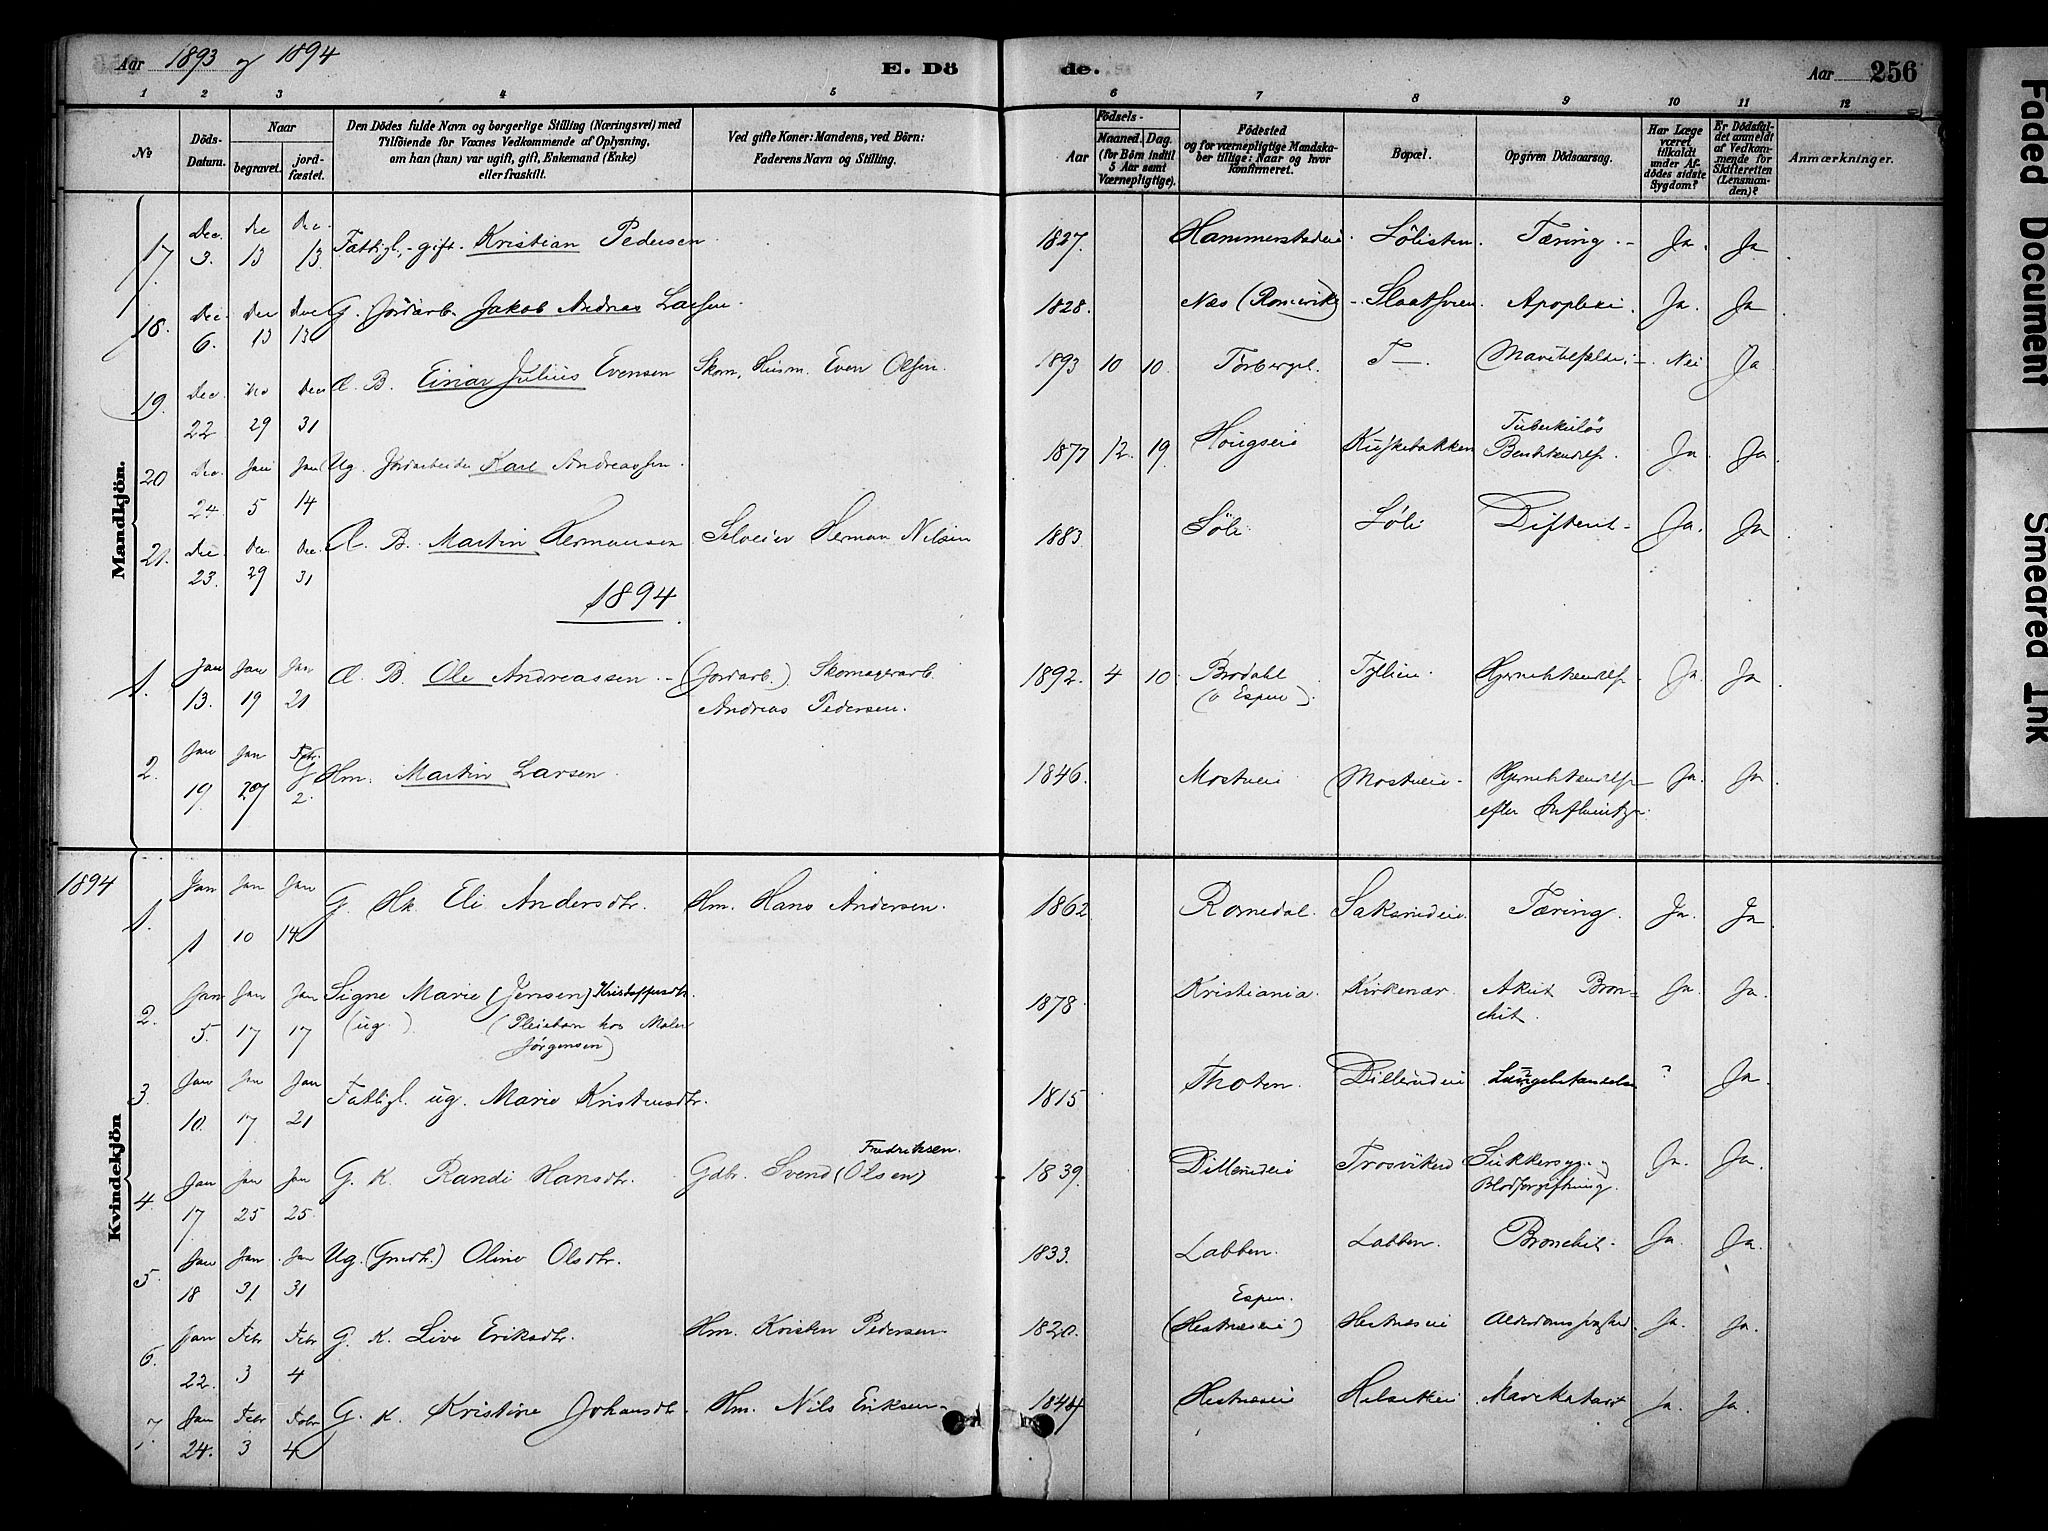 Aar 1893 og 1894
E. Dö
de.
Aar 256
1 2 3 4 5 6 7 8 9 10 11 12
No
Döds-
Datum.
Naar
begravet.
jord-
fæstet.
Den Dödes fulde Navn og borgerlige Stilling (Næringsvei) med
Tilföiende for Voxnes Vedkommende af Oplysning,
om han (hun) var ugift, gift, Enkemand (Enke)
eller fraskilt.
Ved gifte Koner: Mandens, ved Börn:
Faderens Navn og Stilling.
Aar
Födsels-
Maaned. Dag.
(for Börn indtil
5 Aar samt
Værnepligtige).
Födested
og for værnepligtige Mandska-
ber tillige: Naar og hvor
konfirmeret.
Bopæl.
Opgiven Dödsaarsag.
Har Læge
været
tilkaldt
under Af-
dödes sidste
Sygdom?
Er Dödsfal-
det anmeldt
af Vedkom-
mende for
Skifteretten
(Lensman-
den)?
Anmærkninger.
Mandkjön.
17. Dec. 3. Dec 13 Dec. 13. Fattigl., gift. Kristian Pedersen 1827. Hammerstadeie. Lölisten. Tæring. Ja. Ja
18. Dec. 6. Dec 13 Dec 13 G. Jordarb. Jakob Andreas Larsen. 1828. Næs (Romerike) Slaatsveen. Apoplexi Ja. Ja
19. Dec 22. Dec 29 Dec 31 Æ. B. Einar Julius Evensen Skom, Husm. Even Olsen. 1893 10 10. Torbergpl. T— Nei Ja
20 Dec. 24. Jan 5 Jan 14 Ug. Jordarbeider Karl Andreassen. 1877 12. 19. Hougseie Tuberkuløs
Ja Ja
21. Dec. 23. Dec 29 Dec. 31 Æ. B. Martin Hermansen Selveier Herman Nilsen 1883. Löli Löli Difterit Ja. Ja
1894
1. Jan 13. Jan 19 Jan 21 Æ. B. Ole Andreassen. (Jordarb.) Skomagerarb. 1892. 4 10. Brodahl Hjernebetændelse Ja Ja
Andreas Pedersen. (u Espen).
2. Jan 19. Jan 27 Febr. 2. Hm. Martin Larsen. 1846. Mostueie Mostueie Hjernebetændelse Ja Ja
efter Influentza
1894
Kvindekjön
1. Jan 1 Jan 10 Jan 14 G. Hk. Eli Andersdtr. Hm. Hans Andersen. 1862 Romedal. Tæring. Ja. Ja
2. Jan 5. Jan 17 Jan 17 Signe Marie (Jensen) Kristoffersdtr. 1878. Kristiania. Kirkenær. Akut Bron- Ja. Ja.
(ug.) (Pleiebarn hos Maler chit.
Jørgensen)
3. Jan 10. Jan 17 Jan 21 Fattigl. ug. Marie Kristensdtr. 1815 Thoten. Dillerudeie Lungebetændelse ? Ja.
4 Jan 17 Jan 25 Jan 25. G. K. Randi Hansdtr. Gdbr. Svend (Olsen) Fredriksen. 1839. Dillerudeie Sukkersyge og Ja. Ja.
Blodforgiftning.
5. Jan 18 Jan 31. Jan 31 Ug. (Gmdtr.) Oline Olsdtr. 1833. Labben. Labben. Bronchit. Ja. Ja.
Espen.
6. Jan 22. Febr 3 Febr 4 G. K. Live Eriksdtr. Hm. Kristen Pedersen. 1820. (Hestnæseie) Hestnæseie Alderdomssvaghed. Ja. Ja.
7. Jan 24. Febr 3 Febr 4 G. K. Kristine Johansdtr. Hm. Nils Eriksen. 1844 Hestnæseie Helsetheie Mavekatarrh Ja. Ja.
Faded Document
Smeared Ink